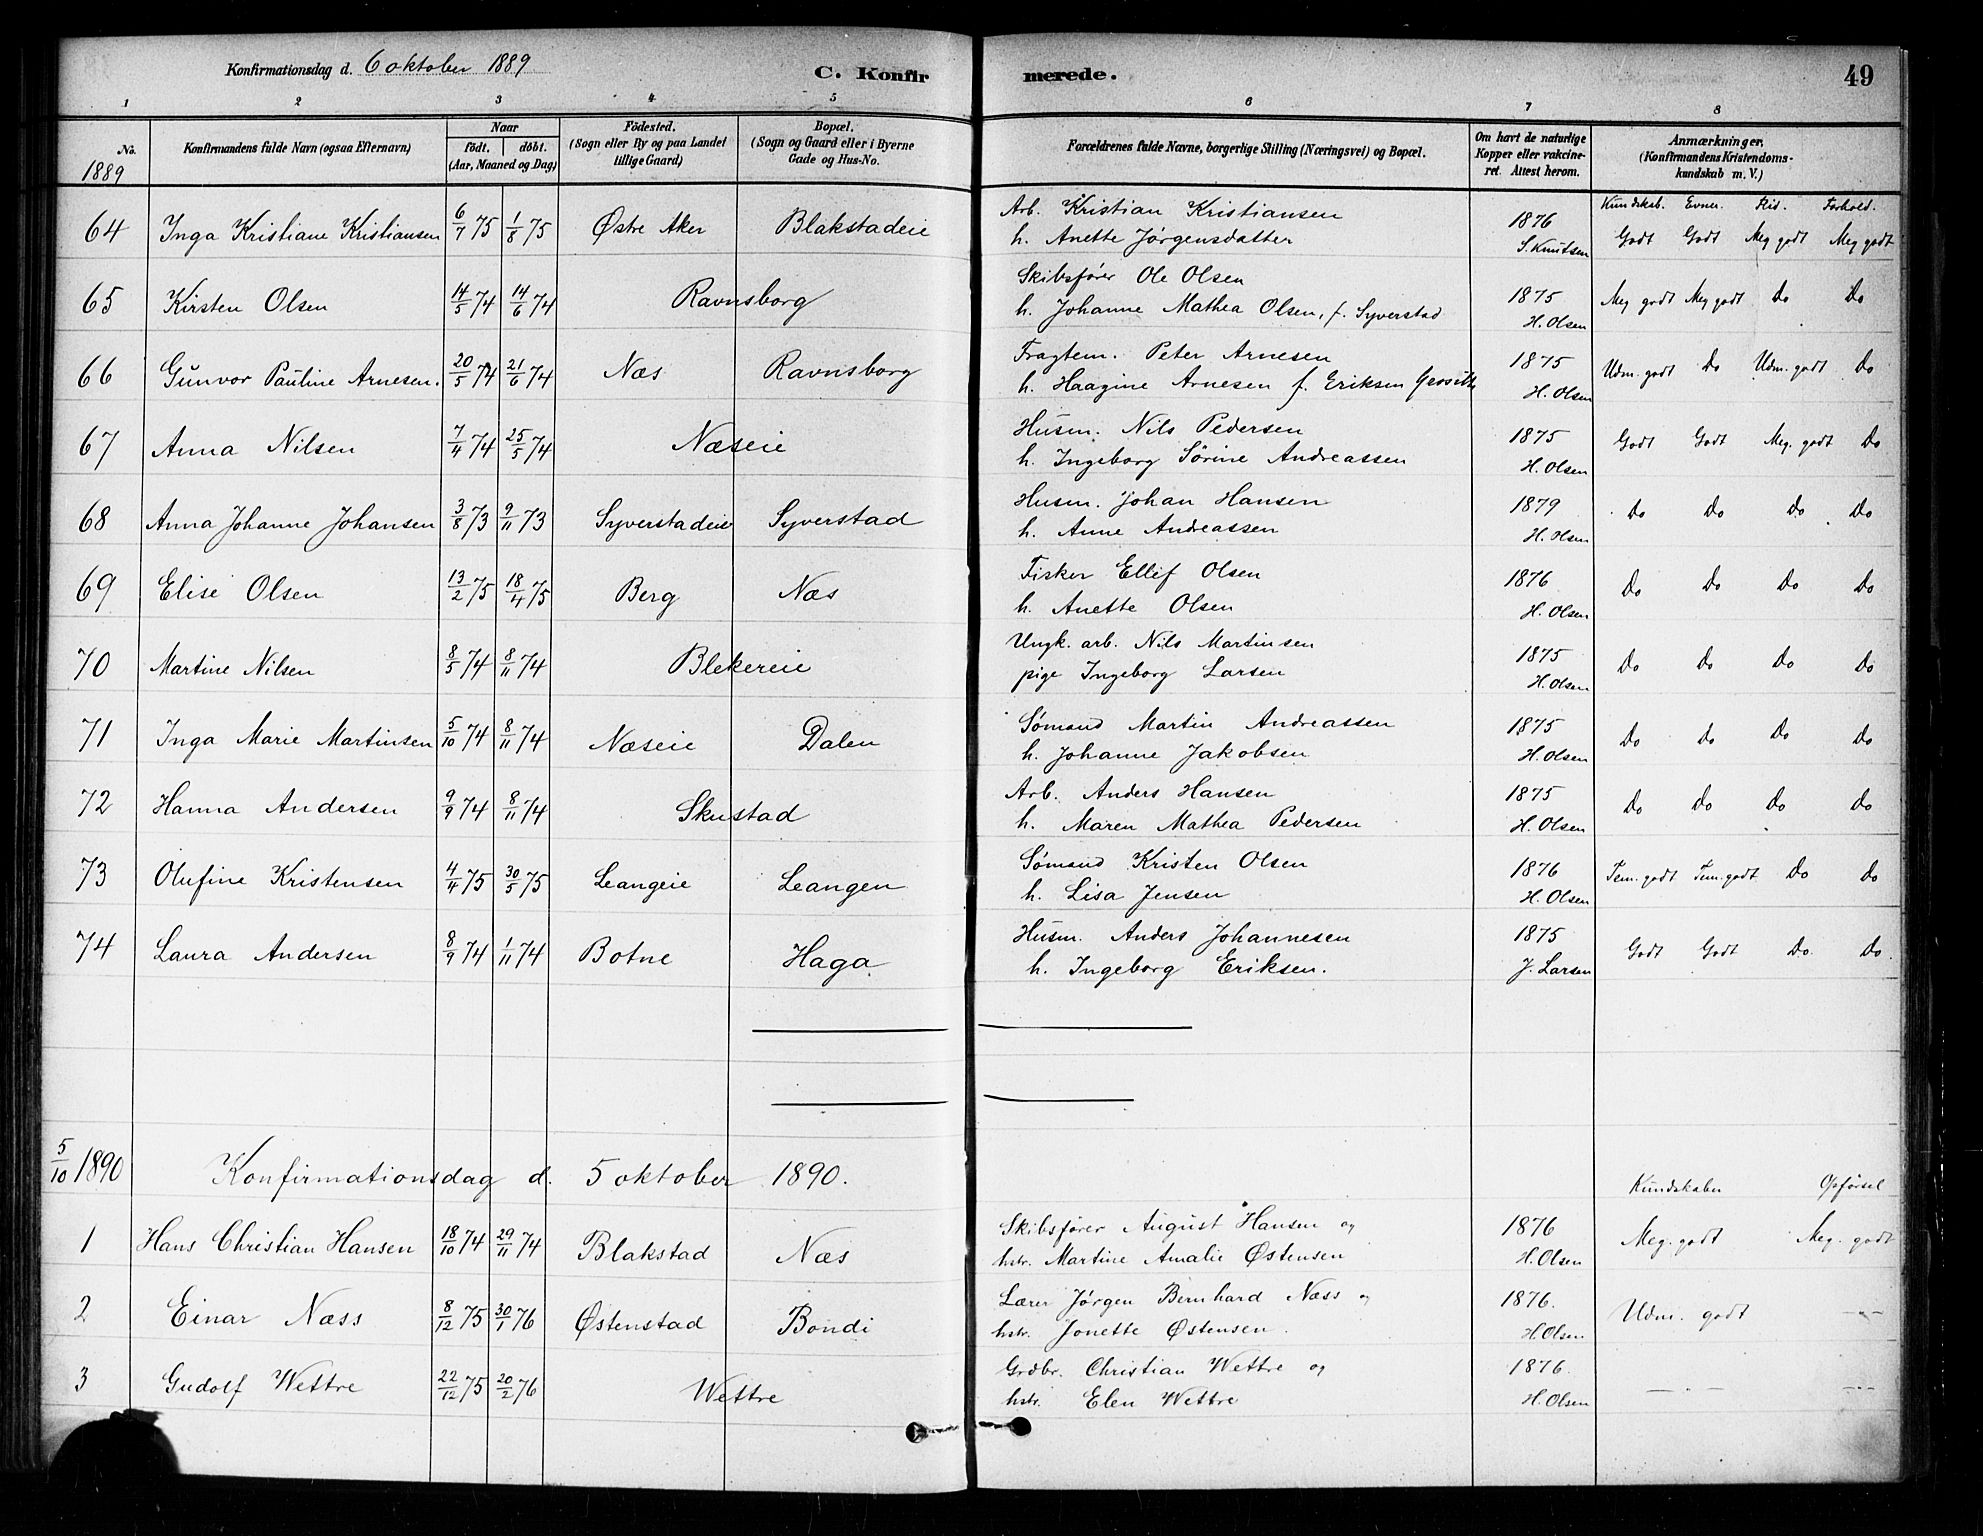 Konfirmationsdag d. 6 oktober 1889
C. Konfirmerede.
49
1 2 3 4 5 6 7 8
No. 1889
Konfirmandens fulde Navn (ogsaa Efternavn)
Naar
födt. döbt.
(Aar, Maaned og Dag)
Födested.
(Sogn eller By og paa Landet tillige Gaard)
Bopæl.
(Sogn og Gaard eller i Byerne Gade og Hus-No.
Forældrenes fulde Navne, borgerlige Stilling (Næringsvei) og Bopæl.
Om havt de naturlige Kopper eller vakcineret. Attest herom.
Anmærkninger,
(Konfirmandens Kristendomskundskab m. V.)
Kundskab. Evner. Flid. Forhold.
64 Inga Kristiane Kristiansen 6/7 75 1/8 75 Østre Aker Blakstadeie Arb. Kristian Kristiansen 1876 Godt Godt Meg godt Meg godt
h. Anette Jørgensdatter S. Knutsen
65 Kirsten Olsen 14/5 74 14/6 74 Ravnsborg Skibsfører Ole Olsen 1875 Meg godt Meg godt Do Do
h. Johanne Mathea Olsen, f. Syverstad H. Olsen
66 Gunvor Pauline Arnesen. 20/5 74 21/6 74 Næs Ravnsborg Fragtem. Peter Arnesen 1875 Udm. godt Do Udm. godt Do
h. Haagine Arnesen f. Eriksen H. Olsen
67 Anna Nilsen 7/4 74 25/5 74 Næseie Husm. Nils Pedersen 1875 Godt Godt Meg. godt Do
h. Ingeborg Sørine Andreassen H. Olsen
68 Anna Johanne Johansen 3/8 73 9/11 73 Syverstadeie Syverstad Husm. Johan Hansen 1879 Do Do Do Do
h. Anne Andreassen H. Olsen
69 Elise Olsen 13/2 75 18/4 75 Berg Næs Fisker Ellef Olsen 1876 Do Do Do Do
h. Anette Olsen H. Olsen
70 Martine Nilsen 8/5 74 8/11 74 Blekereie Ungk. arb. Nils Martinsen 1875 Do Do Do Do
pige Ingeborg Larsen H. Olsen
71 Inga Marie Martinsen 5/10 74 8/11 74 Næseie Dalen Sømand Martin Andreassen 1875 Do Do Do Do
h. Johanne Jakobsen H. Olsen
72 Hanna Andersen 9/9 74 8/11 74 Skustad Arb. Anders Hansen 1875 Do Do Do Do
h. Maren Mathea Pedersen H. Olsen
73 Olufine Kristensen 4/4 75 30/5 75 Leangeie Leangen Sømand Kristen Olsen 1876 Tem. godt Tem. godt Do Do
h. Lisa Jensen H. Olsen
74 Laura Andersen 8/9 74 1/11 74 Botne Haga Husm. Anders Johannesen 1875 Godt Godt Do. Do.
h. Ingeborg Eriksen. J. Larsen
5/10 1890 Konfirmationsdag d. 5 oktober 1890. Kundskaber Opførsel
1 Hans Christian Hansen 18/10 74 29/11 74 Blakstad Næs Skibsfører August Hansen og 1876 Meg. godt Meg. godt
hstr. Martine Amalie Østensen H. Olsen
2 Einar Næss 8/12 75 30/1 76 Østenstad Bondi Lærer Jørgen Bernhard Næss og 1876. Udm. godt -"-
hstr. Jonette Østensen. H. Olsen
3 Gudolf Wettre 22/12 75 20/2 76 Wettre Grdbr. Christian Wettre og 1876. -"- -"-
hstr. Elen Wettre H. Olsen